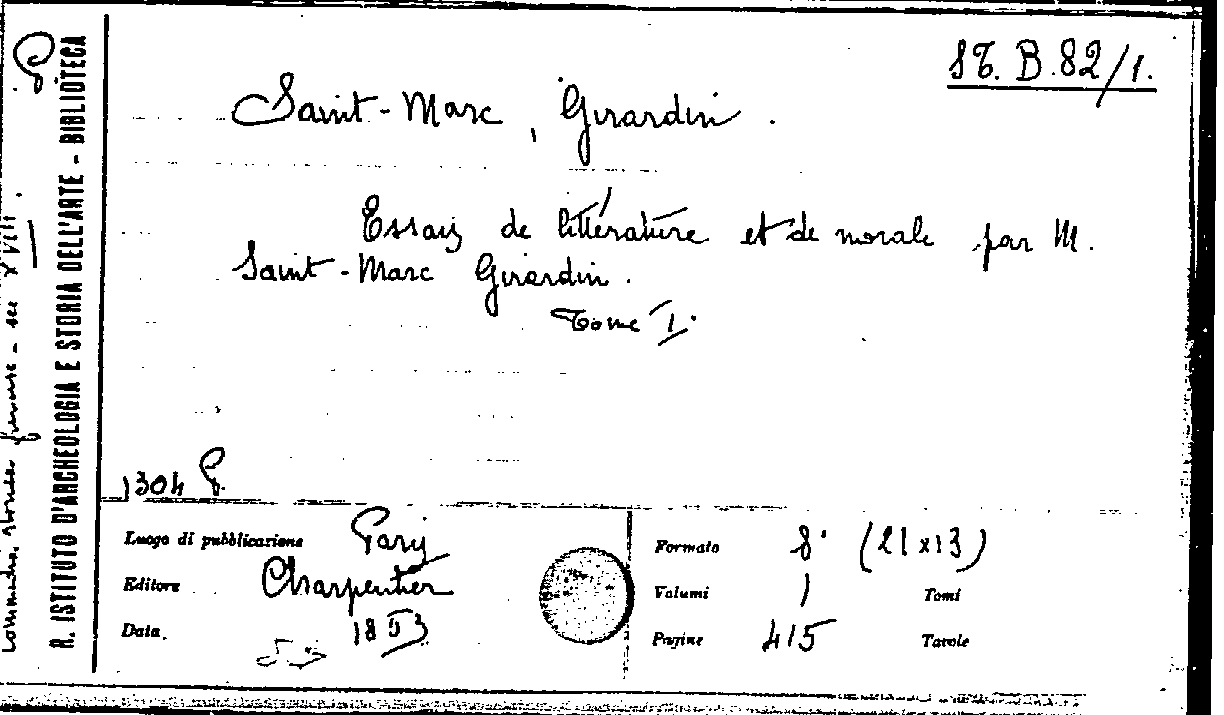 ST. B.82/1.
Saint-Marc, Girardin.
Essais de littérature et de morale par M.
Saint-Marc Girardin.
Tome I.
1304 P.
Luogo di pubblicazione Paris
Editore Charpentier
Data. 1853
53
Formato 8° (21x13)
Volumi 1 Tomi
Pagine 415 Tavole
R. ISTITUTO D'ARCHEOLOGIA E STORIA DELL'ARTE - BIBLIOTECA
P